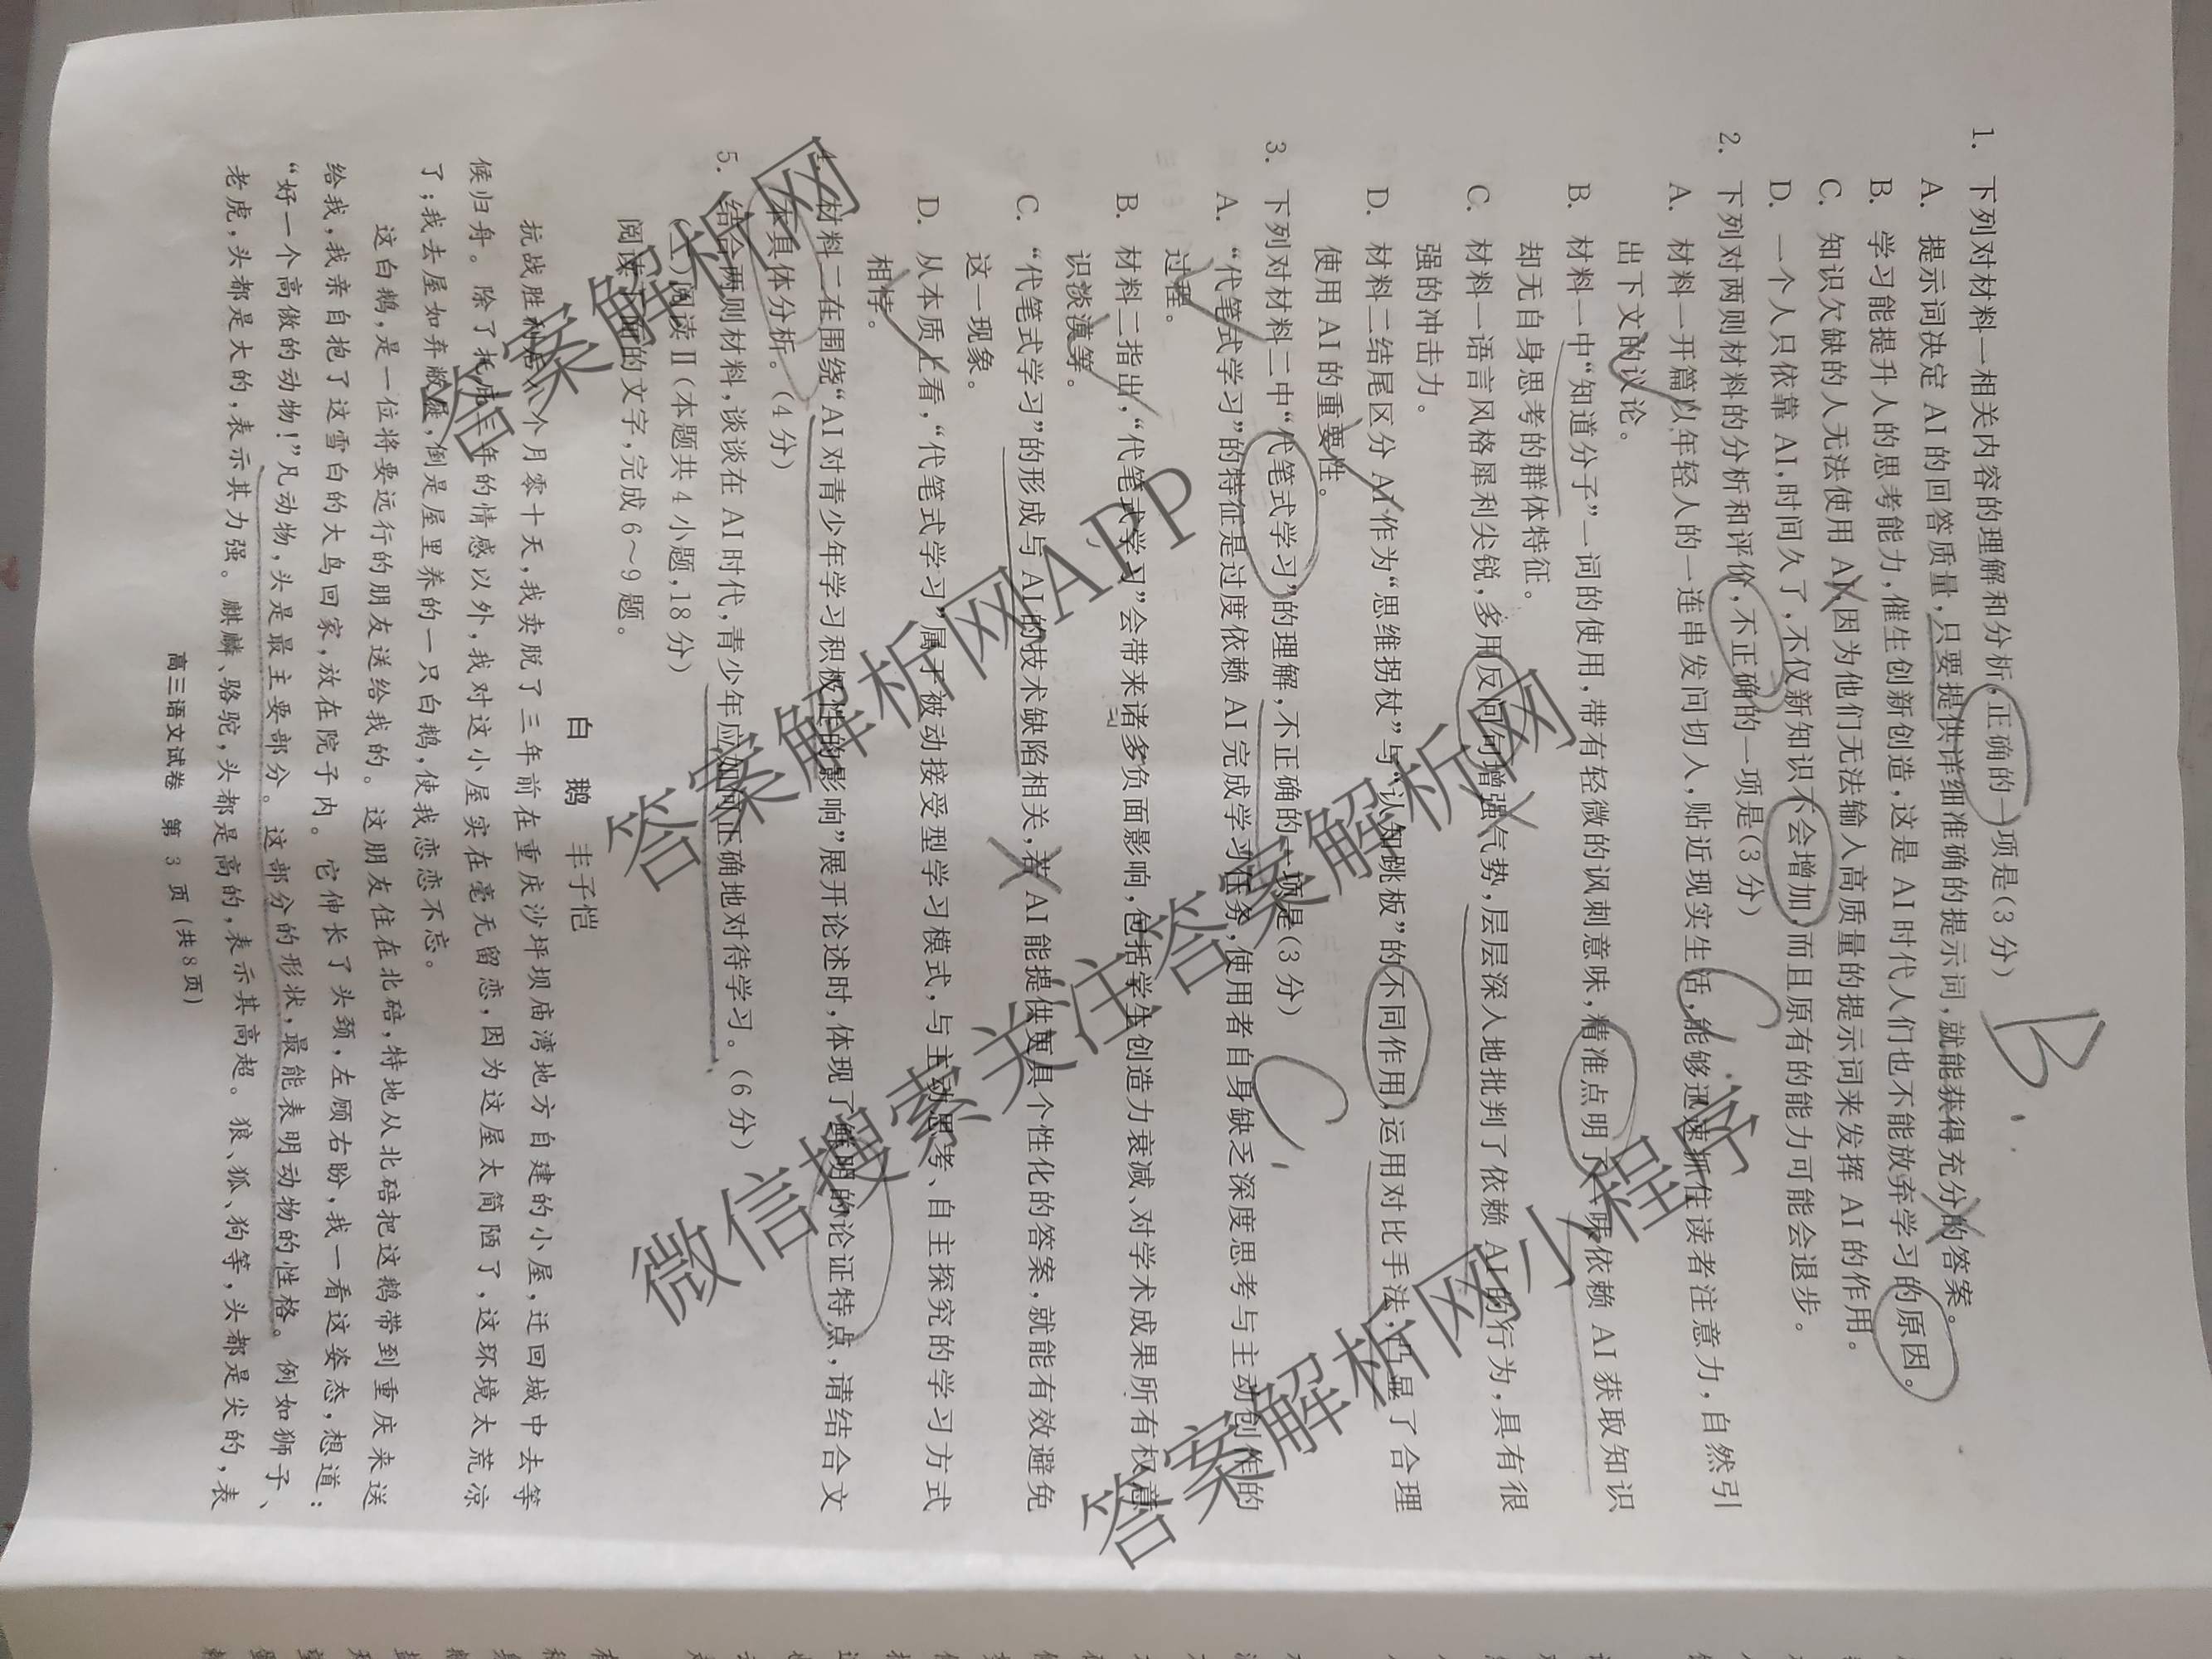 1. 下列对材料一相关内容的理解和分析,正确的一项是(3分)
B.
A. 提示词决定 AI 的回答质量,只要提供详细准确的提示词,就能获得充分的答案。
B. 学习能提升人的思考能力,催生创新创造,这是 AI 时代人们也不能放弃学习的原因。
C. 知识欠缺的人无法使用 AI,因为他们无法输入高质量的提示词来发挥 AI 的作用。
D. 一个人只依靠 AI,时间久了,不仅新知识不会增加,而且原有的能力可能会退步。
2. 下列对两则材料的分析和评价,不正确的一项是(3分)
C
A. 材料一开篇以年轻人的一连串发问切入,贴近现实生活,能够迅速抓住读者注意力,自然引
出下文的议论。
B. 材料一中“知道分子”一词的使用,带有轻微的讽刺意味,精准点明了一味依赖 AI 获取知识
却无自身思考的群体特征。
C. 材料一语言风格犀利尖锐,多用反问句增强气势,层层深入地批判了依赖 AI 的行为,具有很
强的冲击力。
D. 材料二结尾区分 AI 作为“思维拐杖”与“认知跳板”的不同作用,运用对比手法,凸显了合理
使用 AI 的重要性。
3. 下列对材料二中“代笔式学习”的理解,不正确的一项是(3分)
C
A. “代笔式学习”的特征是过度依赖 AI 完成学习任务,使用者自身缺乏深度思考与主动创作的
过程。
B. 材料二指出,“代笔式学习”会带来诸多负面影响,包括学生创造力衰减、对学术成果所有权意
识淡漠等。
C. “代笔式学习”的形成与 AI 的技术缺陷相关,若 AI 能提供更具个性化的答案,就能有效避免
这一现象。
D. 从本质上看,“代笔式学习”属于被动接受型学习模式,与主动思考、自主探究的学习方式
相悖。
4. 材料二在围绕“AI 对青少年学习积极性的影响”展开论述时,体现了鲜明的论证特点,请结合文
本具体分析。(4分)
5. 结合两则材料,谈谈在 AI 时代,青少年应如何正确地对待学习。(6分)
(二)阅读Ⅱ(本题共4小题,18分)
阅读下面的文字,完成6~9题。
白 鹅
丰子恺
抗战胜利后八个月零十天,我卖脱了三年前在重庆沙坪坝庙湾地方自建的小屋,迁回城中去等
候归舟。除了托庇三年的情感以外,我对这小屋实在毫无留恋,因为这屋太简陋了,这环境太荒凉
了;我去屋如弃敝屣,倒是屋里养的一只白鹅,使我恋恋不忘。
这白鹅,是一位将要远行的朋友送给我的。这朋友住在北碚,特地从北碚把这鹅带到重庆来送
给我,我亲自抱了这雪白的大鸟回家,放在院子内。它伸长了头颈,左顾右盼,我一看这姿态,想道:
“好一个高傲的动物!”凡动物,头是最主要部分。这部分的形状,最能表明动物的性格。例如狮子、
老虎,头都是大的,表示其力强。麒麟、骆驼,头都是高的,表示其高超。狼、狐、狗等,头都是尖的,表
高三语文试卷 第 3 页(共8页)
答案解析网
答案解析网APP
微信搜索关注答案解析网
答案解析网小程序